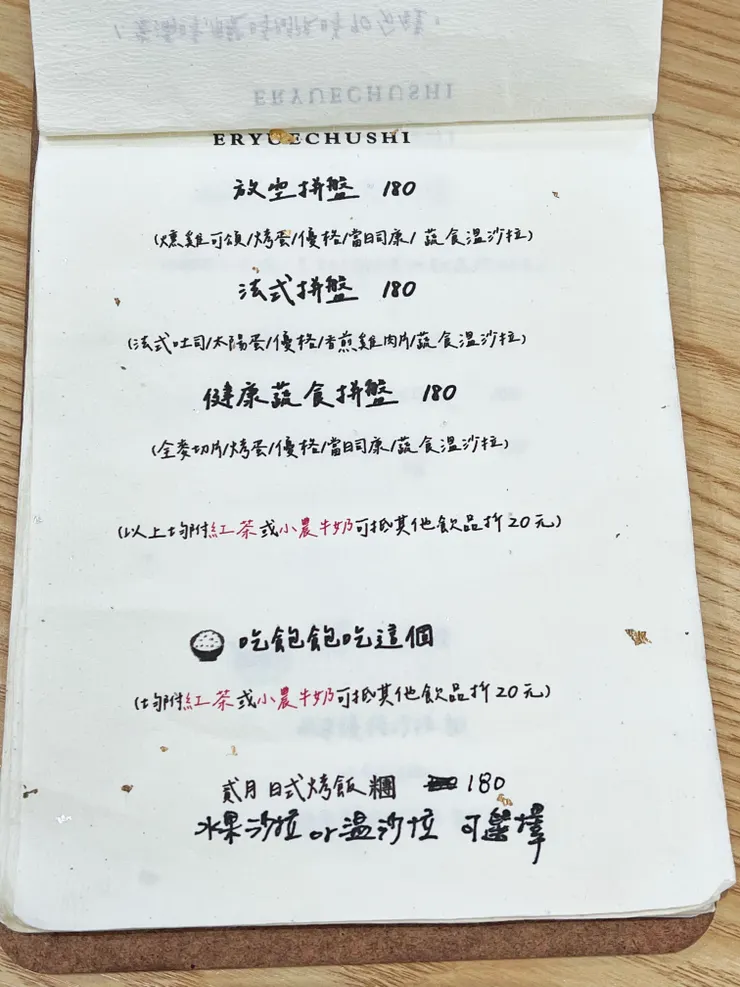 ERYUECHUSHI
ERYUECHUSHI
放空拼盤 180
(燻雞可頌/烤蛋/優格/當日司康/蔬食溫沙拉)
法式拼盤 180
(法式吐司/太陽蛋/優格/香煎雞肉片/蔬食溫沙拉)
健康蔬食拼盤 180
(全麥切片/烤蛋/優格/當日司康/蔬食溫沙拉)
(以上均附紅茶或小農牛奶可抵其他飲品折20元)
吃飽飽吃這個
(均附紅茶或小農牛奶可抵其他飲品折20元)
貳月日式烤飯糰 180
水果沙拉 or 溫沙拉 可選擇